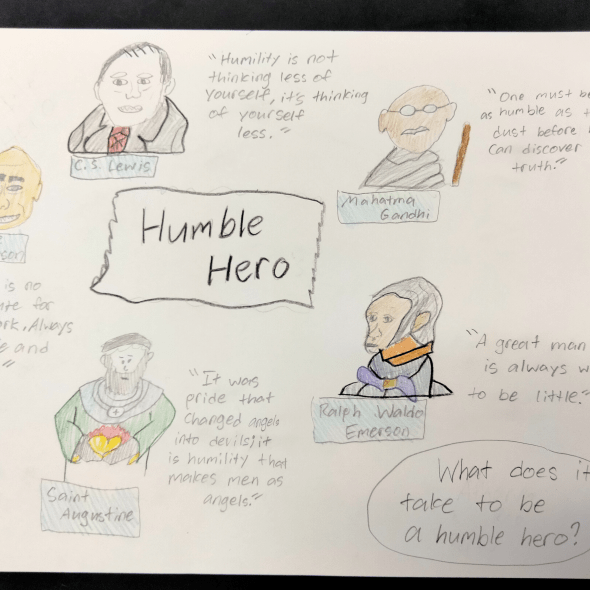 "Humility is not
thinking less of
yourself, it's thinking
of yourself
less."
C.S. Lewis
"One must be
as humble as
dust before
can discover
truth."
Mahatma
Gandhi
Humble
Hero
is no
for
Always
and
"
"It was
pride that
changed angels
into devils; it
is humility that
makes men as
angels."
Saint
Augustine
"A great man
is always
to be little."
Ralph Waldo
Emerson
What does it
take to be
a humble hero?